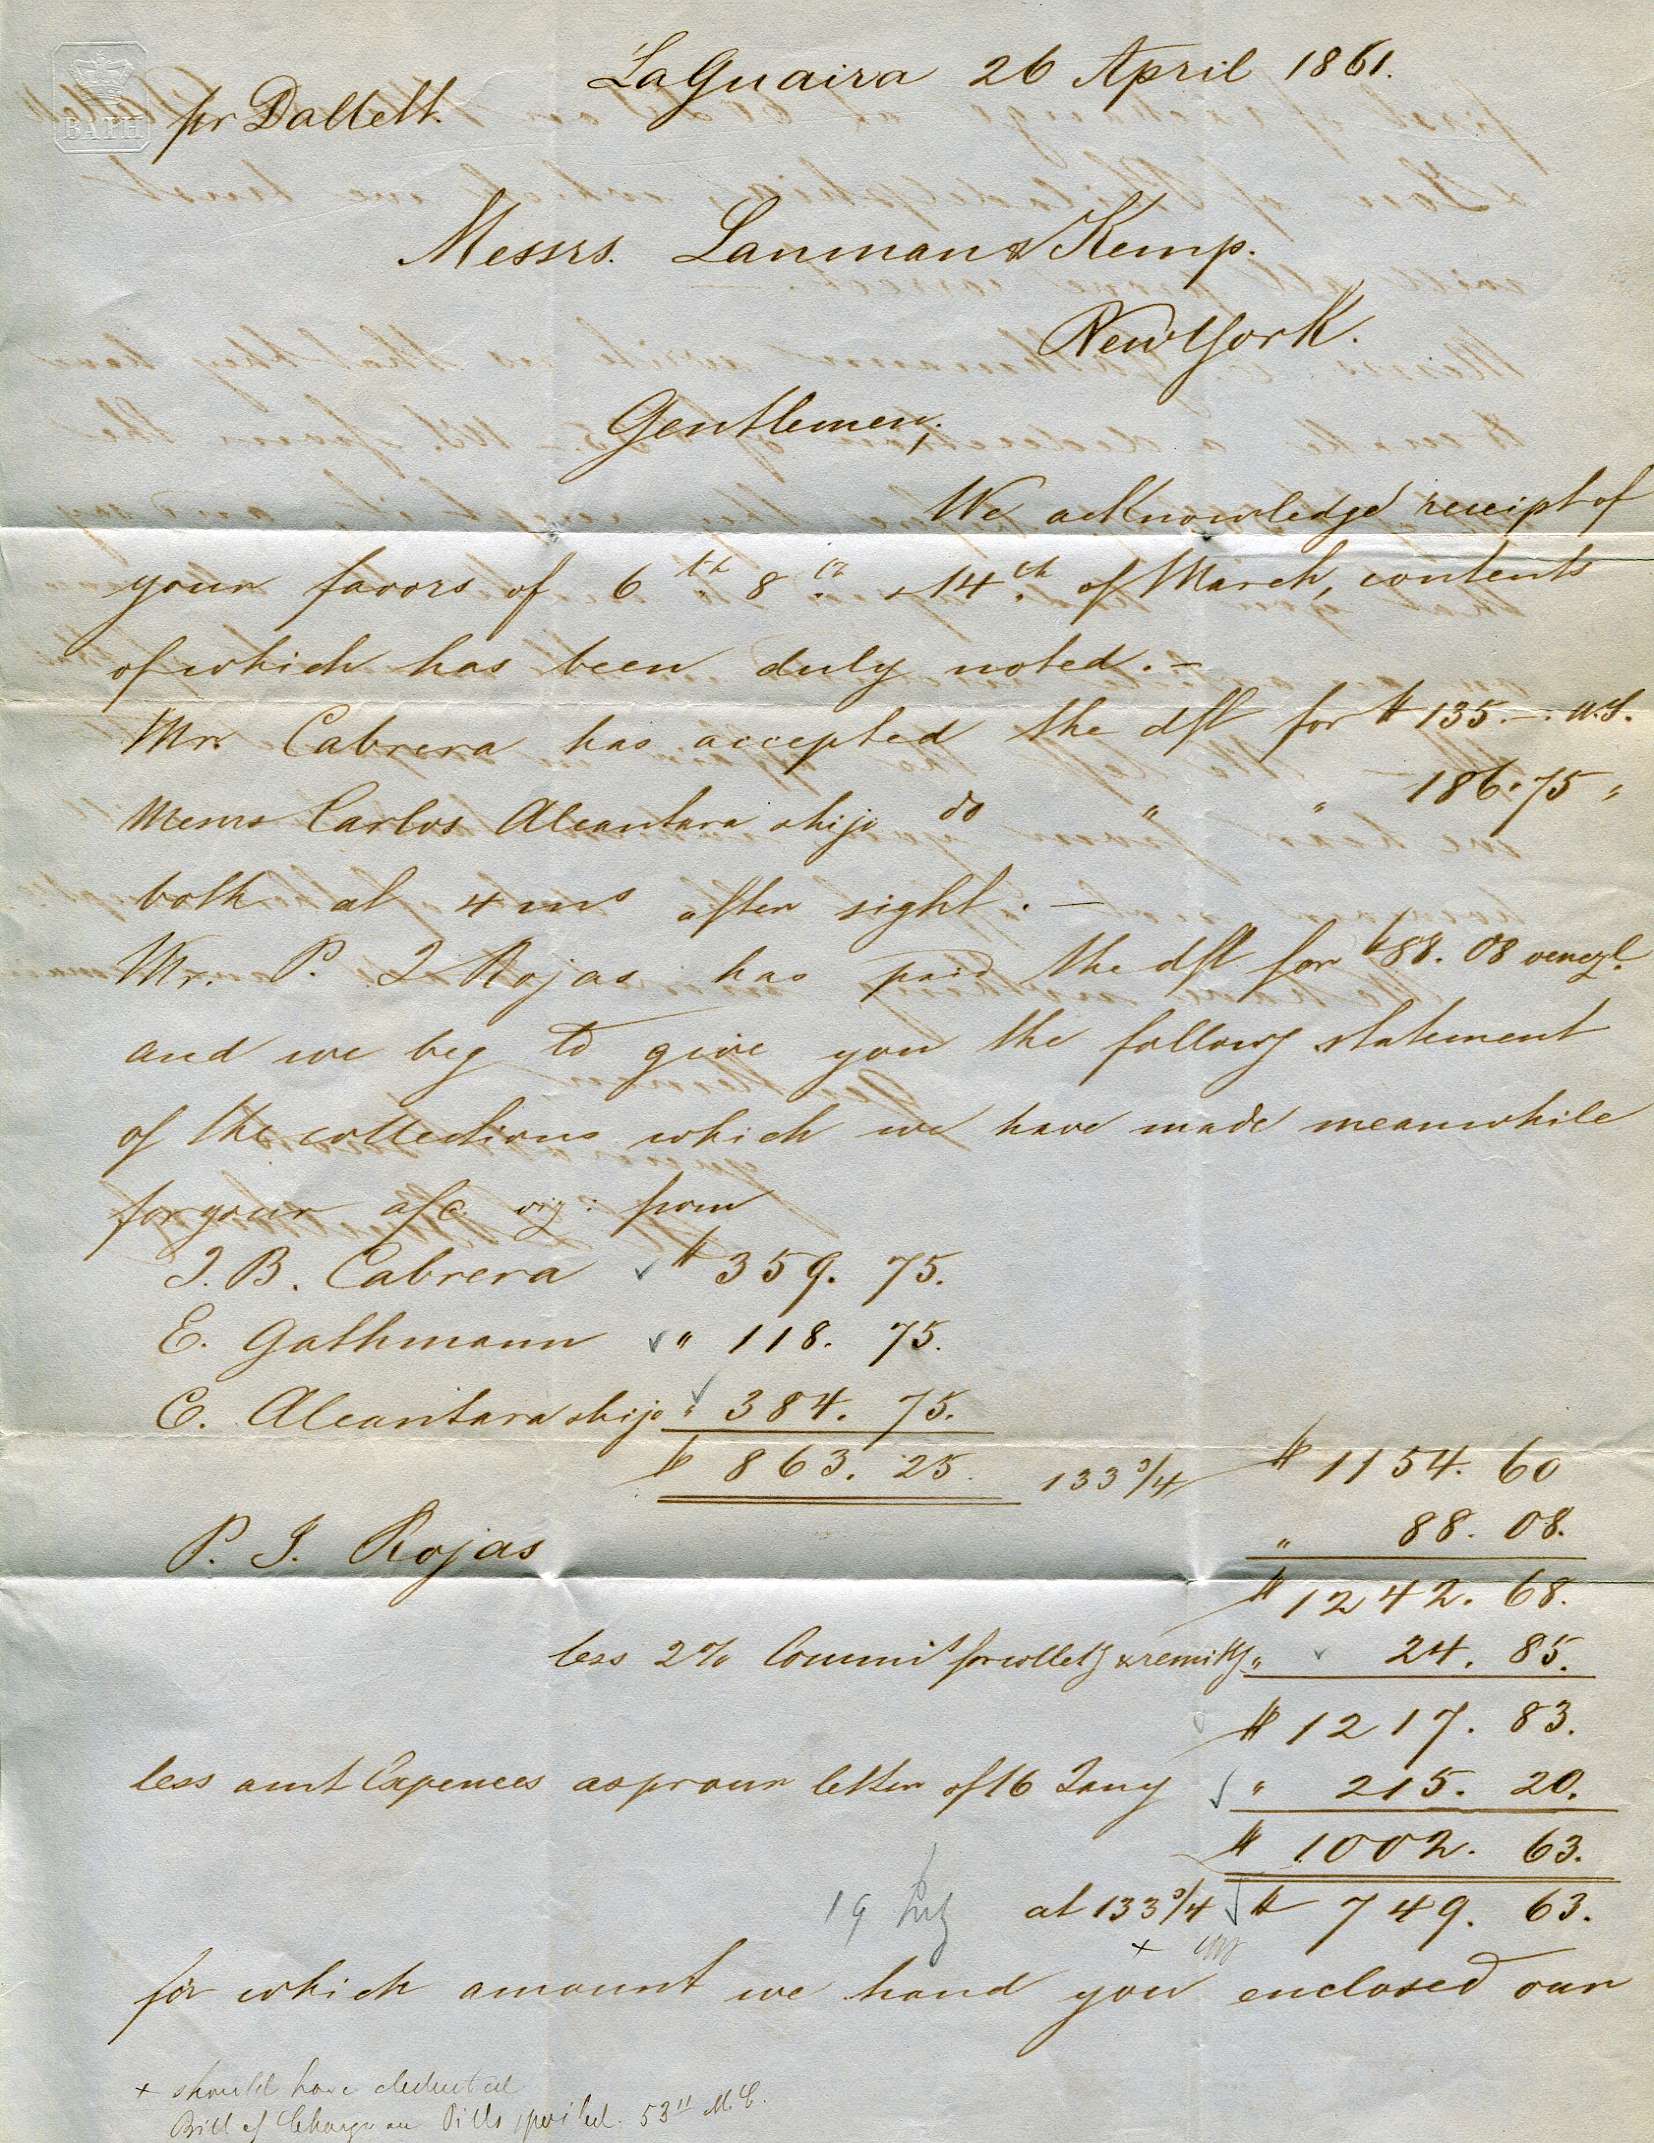 LaGuaira 26 April 1861.
BATH
pr Dallett.
Messrs. Lanman & Kemp.
New York.
Gentlemen,
We acknowledge receipt of
your favors of 6th 8th & 14th of March, contents
of which has been duly noted. –
Mr. Cabrera has accepted the dft for $ 135. –. a.s.
Messrs Carlos Alcantara & hijo do " " 186.75 "
both at 4 ms after sight. –
Mr. P. J. Rojas has paid the dft for $88. 08 venezl.
and we beg to give you the followg statement
of the collections which we have made meanwhile
for your a/c. viz: from
J. B. Cabrera $ 359. 75.
E. Gathmann " 118. 75.
C. Alcantara & hijo " 384. 75.
$ 863. 25. 133 3/4 $ 1154. 60
P. J. Rojas " 88. 08.
$ 1242. 68.
less 2% Commis for collctg & remittg " 24. 85.
$ 1217. 83.
less amt Expences as pr our letter of 16 Jany " 215. 20.
$ 1002. 63.
19 at 133 3/4 $ 749. 63.
+
for which amount we hand you enclosed our
+ should have deducted
Bill of Charge on Pills spoiled. 53 M.C.